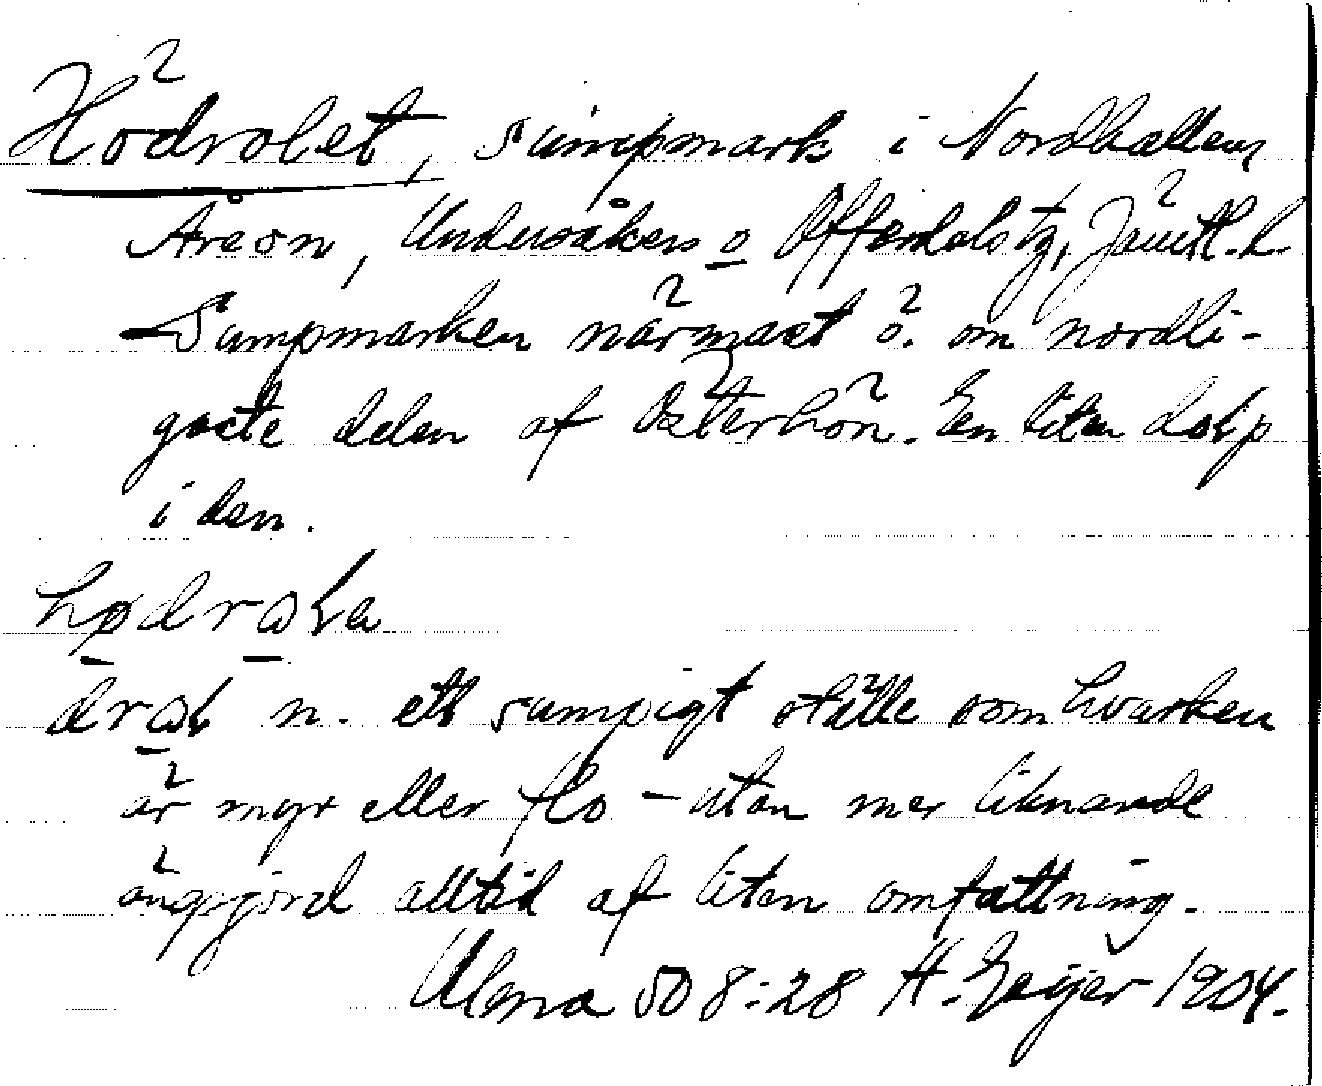 Hödrolet, sumpmark i Nordhallens
Åreon, Undersåkers o Offerdals tg, Jämtl. l
Sumpmarken närmast ö. om nordli-
gaste delen af Österhön. En liten dolp
i den.
hødrola
drol n. ett sumpigt ställe som hvarken
är myr eller flo - utan mer liknande
ängsjord alltid af liten omfattning.
Ulma 508:28 H. Geijer 1904.